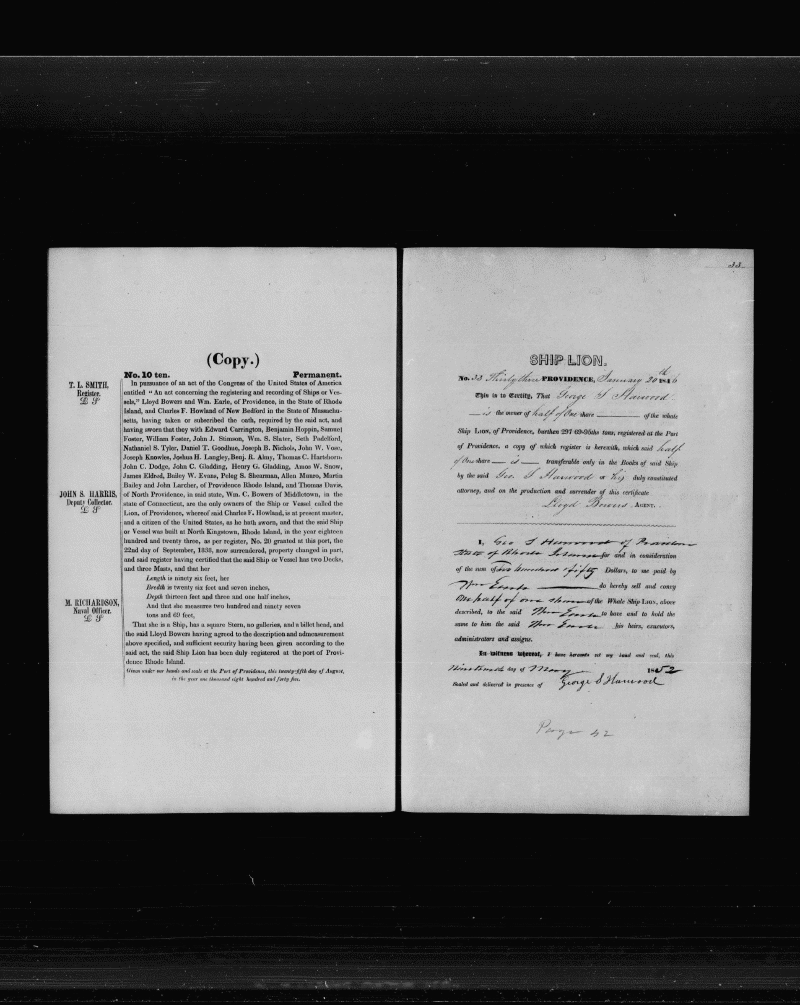 (Copy.)
No. 10 ten. Permanent.
T. L. SMITH,
Register.
L S
JOHN S. HARRIS,
Deputy Collector.
L S
M. RICHARDSON,
Naval Officer.
L S
In pursuance of an act of the Congress of the United States of America
entitled "An act concerning the registering and recording of Ships or Ves-
sels," Lloyd Bowers and Wm. Earle, of Providence, in the State of Rhode
Island, and Charles F. Howland of New Bedford in the State of Massachu-
setts, having taken or subscribed the oath, required by the said act, and
having sworn that they with Edward Carrington, Benjamin Hoppin, Samuel
Foster, William Foster, John J. Stimson, Wm. S. Slater, Seth Padelford,
Nathaniel S. Tyler, Daniel T. Goodhue, Joseph B. Nichols, John W. Vose,
Joseph Knowles, Joshua H. Langley, Benj. R. Almy, Thomas C. Hartshorn
John C. Dodge, John C. Gladding, Henry G. Gladding, Amos W. Snow,
James Eldred, Bailey W. Evans, Peleg S. Shearman, Allen Munro, Martin
Bailey and John Larcher, of Providence Rhode Island, and Thomas Davis,
of North Providence, in said state, Wm. C. Bowers of Middletown, in the
state of Connecticut, are the only owners of the Ship or Vessel called the
Lion, of Providence, whereof said Charles F. Howland, is at present master,
and a citizen of the United States, as he hath sworn, and that the said Ship
or Vessel was built at North Kingstown, Rhode Island, in the year eighteen
hundred and twenty three, as per register, No. 20 granted at this port, the
22nd day of September, 1838, now surrendered, property changed in part,
and said register having certified that the said Ship or Vessel has two Decks,
and three Masts, and that her
Length is ninety six feet, her
Bredth is twenty six feet and seven inches,
Depth thirteen feet and three and one half inches,
And that she measures two hundred and ninety seven
tons and 69 feet,
That she is a Ship, has a square Stern, no galleries, and a billet head, and
the said Lloyd Bowers having agreed to the description and admeasurement
above specified, and sufficient security having been given according to the
said act, the said Ship Lion has been duly registered at the port of Provi-
dence Rhode Island.
Given under our hands and seals at the Port of Providence, this twenty-fifth day of August,
in the year one thousand eight hundred and forty five.
33
SHIP LION.
No. 33 Thirty three PROVIDENCE, January 20th 1846
This is to Certify, That George S Harwood
is the owner of half of One share of the whale
Ship LION, burthen 297 69-95ths tons, registered at the Port
of Providence, a copy of which register is herewith, which said half
of One share is transferable only in the Books of said Ship
by the said Geo. S Harwood or his duly constituted
attorney, and on the production and surrender of this certificate
Lloyd Bowers AGENT.
I, Geo S Harwood of Providence
State of Rhode Island for and in consideration
of the sum of two hundred & fifty Dollars, to me paid by
Wm Earle do hereby sell and convey
One half of one share of the Whale Ship LION, above
described, to the said Wm Earle to have and to hold the
same to him the said Wm Earle his heirs, executors,
administrators and assigns.
In witness whereof, I have hereunto set my hand and seal, this
Nineteenth day of May 1852
Sealed and delivered in presence of George S Harwood
Page 42